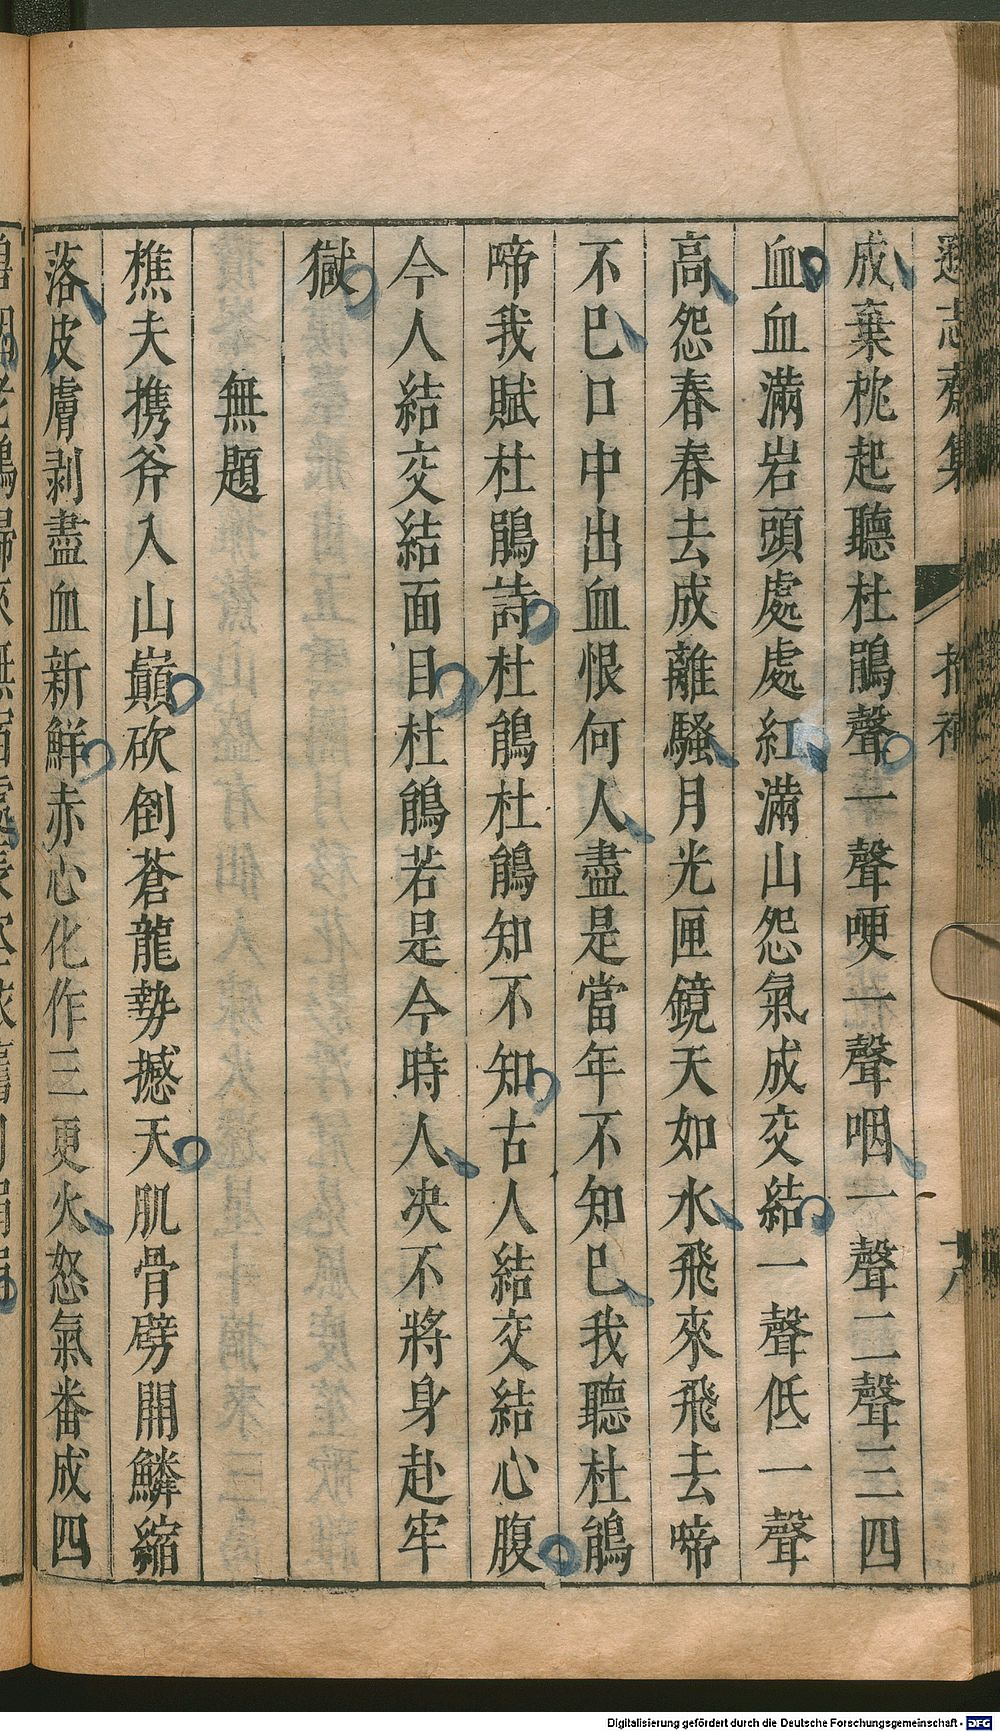 遜志齋集
拾補
十八
成棄枕起聽杜鵑聲一聲哽一聲咽一聲二聲三四
血血滿岩頭處處紅滿山怨氣成交結一聲低一聲
高怨春春去成離騷月光匣鏡天如水飛來飛去啼
不已口中出血恨何人盡是當年不知已我聽杜鵑
啼我賦杜鵑詩杜鵑杜鵑知不知古人結交結心腹
今人結交結面目杜鵑若是今時人决不將身赴牢
獄
無題
樵夫携斧入山巔砍倒蒼龍勢撼天肌骨劈開鱗縮
落皮膚剥盡血新鮮赤心化作三更火怒氣番成四
Digitalisierung gefördert durch die Deutsche Forschungsgemeinschaft - DFG